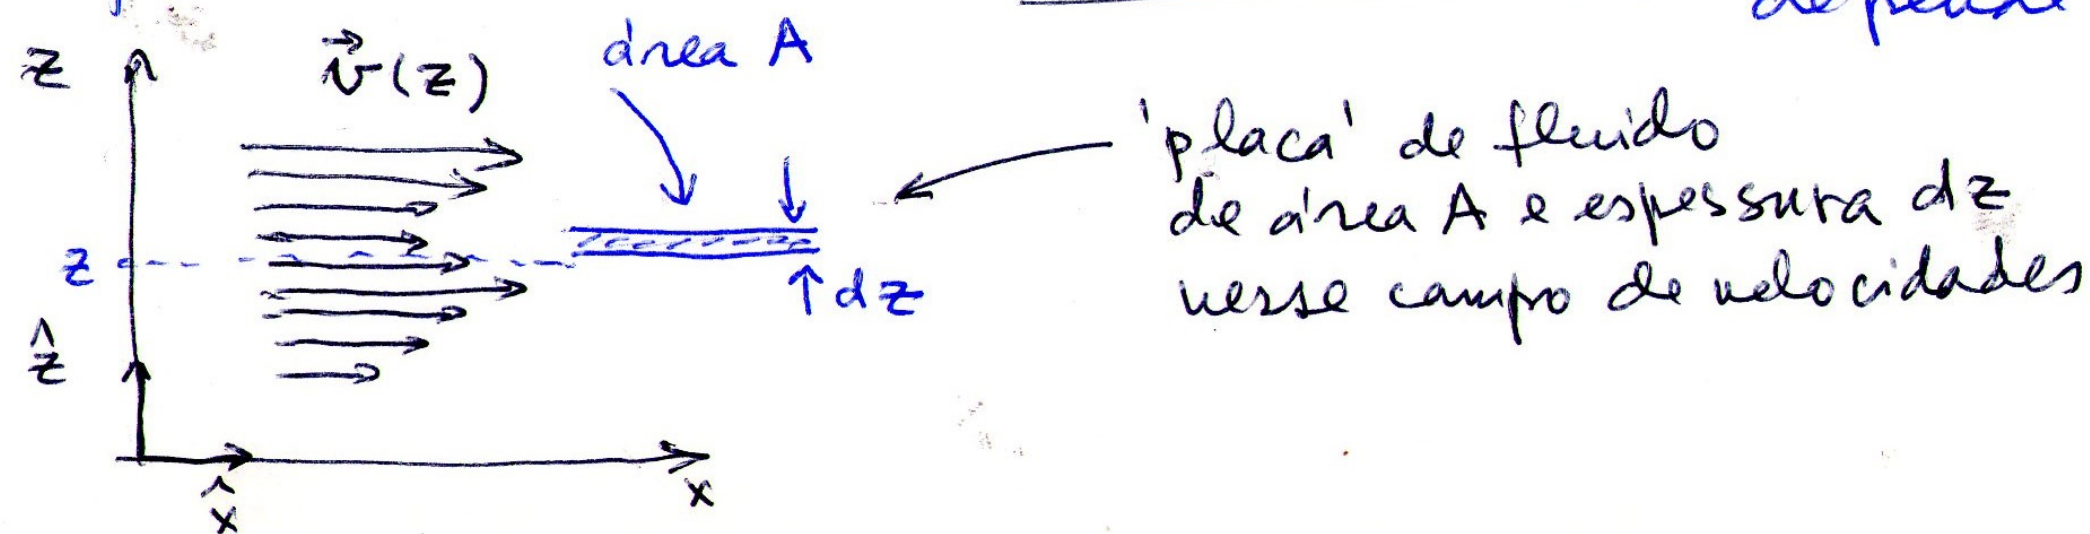 depende
z
v⃗(z)
área A
'placa' de fluido
de área A e espessura dz
nesse campo de velocidades
z
dz
ẑ
x̂
x